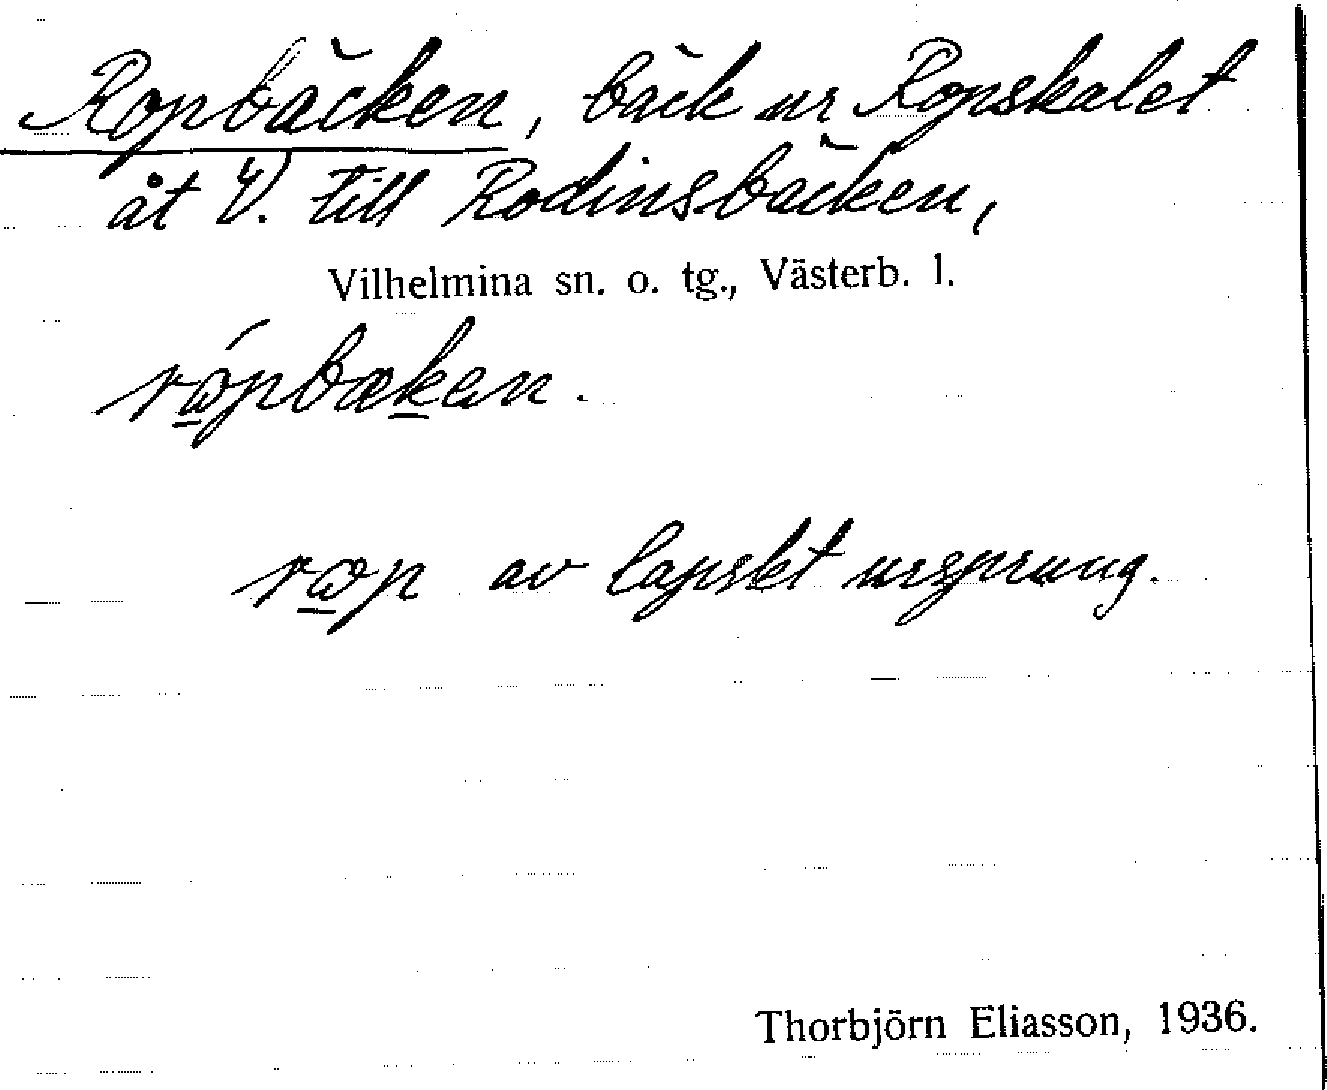 Ropbäcken, bäck ur Ropskalet
åt V. till Rodinsbäcken,
Vilhelmina sn. o. tg., Västerb. l.
ròpbækɐn.
rωp av lapskt ursprung.
Thorbjörn Eliasson, 1936.